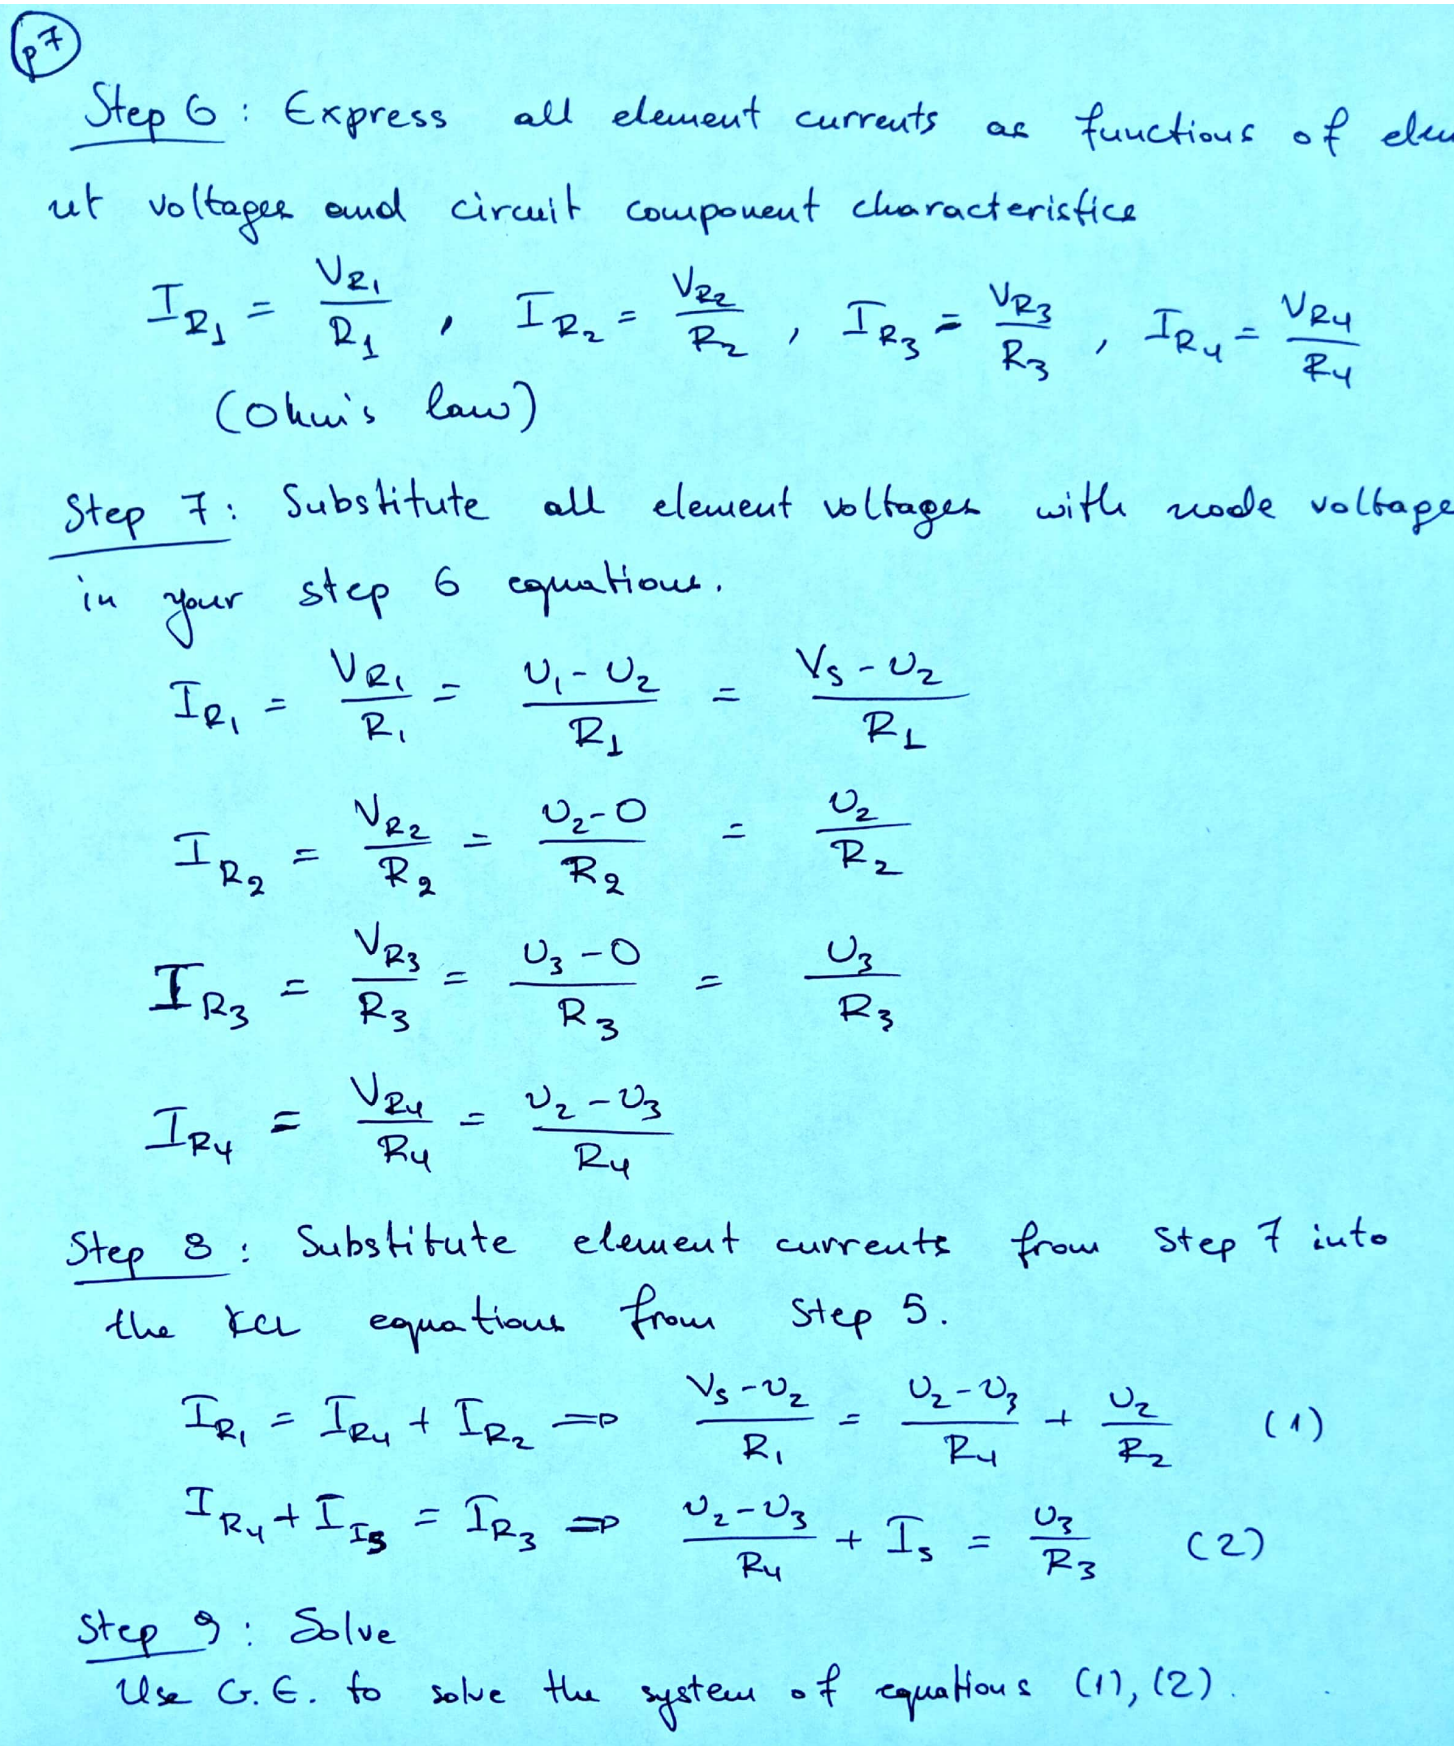 p7
Step 6 : Express all element currents as functions of elem
ent voltages and circuit component characteristics
I_R1 = V_R1/R1 , I_R2 = V_R2/R2 , I_R3 = V_R3/R3 , I_R4 = V_R4/R4
(Ohm's law)
Step 7 : Substitute all element voltages with node voltage
in your step 6 equations.
I_R1 = V_R1/R1 = (U1 - U2)/R1 = (Vs - U2)/R1
I_R2 = V_R2/R2 = (U2 - 0)/R2 = U2/R2
I_R3 = V_R3/R3 = (U3 - 0)/R3 = U3/R3
I_R4 = V_R4/R4 = (U2 - U3)/R4
Step 8 : Substitute element currents from Step 7 into
the KCL equations from Step 5.
I_R1 = I_R4 + I_R2 ⇒ (Vs - U2)/R1 = (U2 - U3)/R4 + U2/R2 (1)
I_R4 + I_Is = I_R3 ⇒ (U2 - U3)/R4 + Is = U3/R3 (2)
Step 9 : Solve
Use G.E. to solve the system of equations (1), (2).